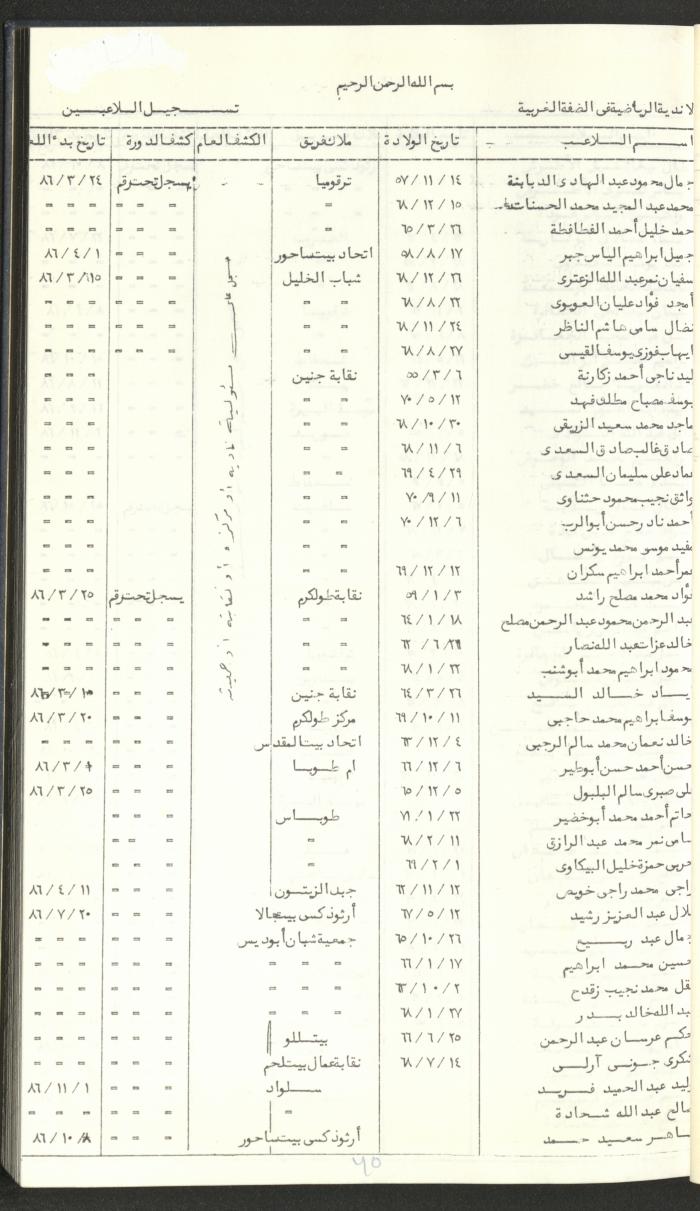 بسم الله الرحمن الرحيم
لاندية الرياضية في الضفة الغربية تسجيل اللاعبين
اسم اللاعب تاريخ الولادة ملاك فريق الكشف العام كشف الدورة تاريخ بدء اللعب
جمال محمود عبد الهادي الدبابنة ١٤ / ١١ / ٥٧ ترقوميا يسجل تحت رقم ٢٤ / ٣ / ٨٦
محمد عبد المجيد محمد الحسنات ١٥ / ١٢ / ٦٨ = = = = = = =
حمد خليل أحمد الفطافطة ٢٦ / ٣ / ٦٥ = = = = = = =
جميل ابراهيم الياس جبر ١٧ / ٨ / ٥٨ اتحاد بيت ساحور = = = ١ / ٤ / ٨٦
سفيان نمر عبد الله الزعتري ٢٦ / ١٢ / ٦٨ شباب الخليل = = = ١٥ / ٣ / ٨٦
أمجد فؤاد عليان العويوي ٢٢ / ٨ / ٦٨ = = = = = = = =
نضال سامي هاشم الناظر ٢٤ / ١١ / ٦٨ = = = = = = = =
ايهاب فوزي يوسف القيسي ٢٧ / ٨ / ٦٨ = = = = = = = =
ليد ناجي أحمد زكارنة ٦ / ٣ / ٥٥ نقابة جنين = = =
يوسف مصباح مطلك فهد ١٢ / ٥ / ٧٠ = = = = =
ماجد محمد سعيد الزريقي ٣٠ / ١٠ / ٦٨ = = = = =
صادق غالب صادق السعدي ٦ / ١١ / ٦٨ = = = = =
عماد علي سليمان السعدي ٢٩ / ٤ / ٦٩ = = = = =
واثق نجيب محمود حثناوي ١١ / ٩ / ٧٠ = = = = =
أحمد نادر حسن أبو الرب ٦ / ١٢ / ٧٠ = = = = =
مفيد موسى محمد يونس = = = = =
عمر أحمد ابراهيم سكران ١٢ / ١٢ / ٦٩ = = = = =
فؤاد محمد مصلح راشد ٣ / ١ / ٥٩ نقابة طولكرم يسجل تحت رقم ٢٥ / ٣ / ٨٦
عبد الرحمن محمود عبد الرحمن مصلح ١٨ / ١ / ٦٤ = = = = = = = =
خالد عزات عبد الله نصار / ٦ / ٦٢ = = = = = = = =
محمود ابراهيم محمد أبو شنب ٢٢ / ١ / ٦٨ = = = = = = = =
اياد خالد السيد ٢٦ / ٣ / ٦٤ نقابة جنين = = =
يوسف ابراهيم محمد حاجبي ١١ / ١٠ / ٦٩ مركز طولكرم = = ٢٠ / ٣ / ٨٦
خالد نعمان محمد سالم الرجبي ٤ / ١٢ / ٦٣ اتحاد بيت المقدس = = = = = =
حسن أحمد حسن أبو طير ٦ / ١٢ / ٦٦ ام طوبا = = = / ٣ / ٨٦
علي صبري سالم البلبول ٥ / ١٢ / ٦٥ = = = ٢٥ / ٣ / ٨٦
حاتم أحمد محمد أبو خضير ٢٢ / ١ / ٧١ طوباس = = =
سامي نمر محمد عبد الرازق ١١ / ٢ / ٦٨ = = = =
حربي حمزة خليل البيكاوي ١ / ٢ / ٦٩ = = = =
راجي محمد راجي خويص ١٢ / ١١ / ٦٢ جبل الزيتون = = = ١١ / ٤ / ٨٦
بلال عبد العزيز رشيد ١٢ / ٥ / ٦٧ أرثوذكسي بيت جالا = = = ٢٠ / ٧ / ٨٦
جمال عبد ربيع ٢٦ / ١٠ / ٦٥ جمعية شبان أبو ديس = = = = = =
حسين محمد ابراهيم ١٧ / ١ / ٦٦ = = = = = = = = =
نقل محمد نجيب زقدح ٢ / ١٠ / ٦٣ = = = = = = = = =
عبد الله خالد بدر ٢٧ / ١ / ٦٨ = = = = = = = = =
حكم عرسان عبد الرحمن ٢٥ / ٦ / ٦٦ بيتللو = = = = = =
شكري جوني آرلي ١٤ / ٧ / ٦٨ نقابة عمال بيت لحم = = = = = =
وليد عبد الحميد فريد سلواد = = = ١ / ١١ / ٨٦
صالح عبد الله شحادة = = = = = = =
ساهر سعيد حمد أرثوذكسي بيت ساحور = = ٨ / ١٠ / ٨٦
مسئولية ناديه او مركزه او نقابته او جمعيته
٧٥